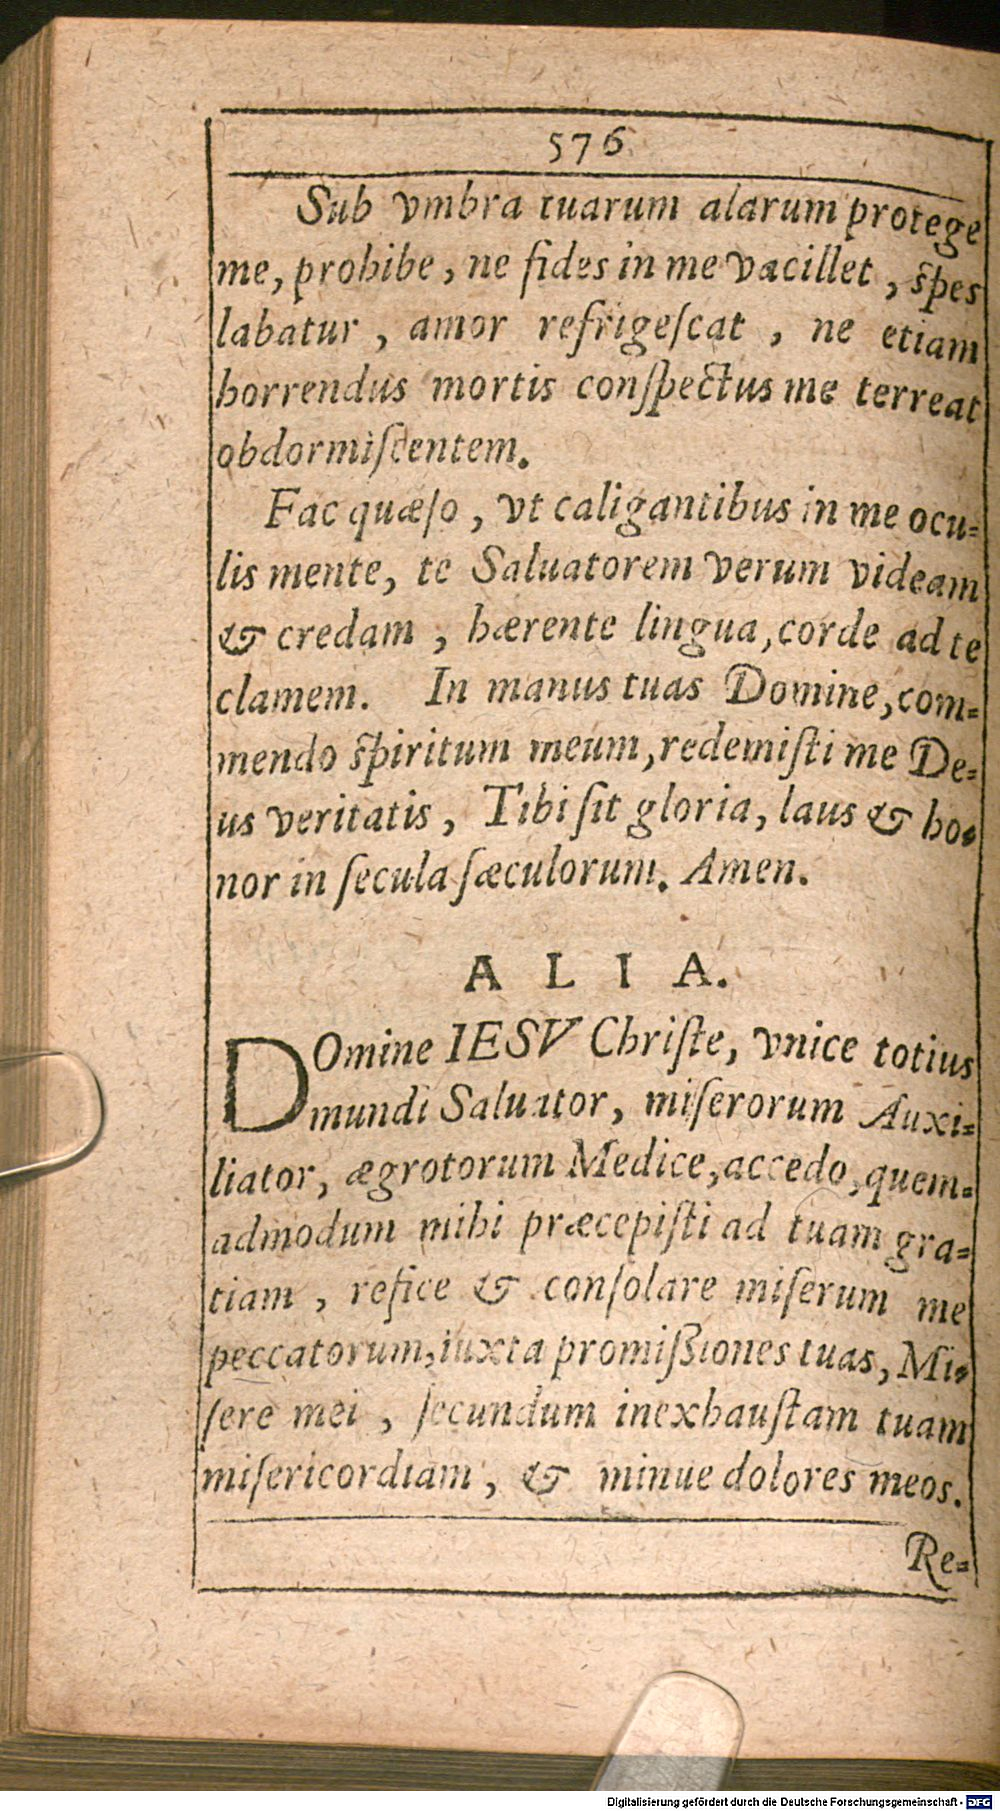 576
Sub vmbra tuarum alarum protege
me, prohibe, ne fides in me vacillet, ſpes
labatur, amor refrigeſcat, ne etiam
horrendus mortis conſpectus me terreat
obdormiſcentem.
Fac quæſo, vt caligantibus in me ocu-
lis mente, te Saluatorem verum videam
& credam, hærente lingua, corde ad te
clamem. In manus tuas Domine, com-
mendo ſpiritum meum, redemiſti me De-
us veritatis, Tibi ſit gloria, laus & ho-
nor in ſecula ſæculorum. Amen.
ALIA.
DOmine IESV Chriſte, vnice totius
mundi Saluator, miſerorum Auxi-
liator, ægrotorum Medice, accedo, quem-
admodum mihi præcepiſti ad tuam gra-
tiam, refice & conſolare miſerum me
peccatorum, iuxta promiſſiones tuas, Mi-
ſere mei, ſecundum inexhauſtam tuam
miſericordiam, & minue dolores meos.
Re-
Digitalisierung gefördert durch die Deutsche Forschungsgemeinschaft - DFG